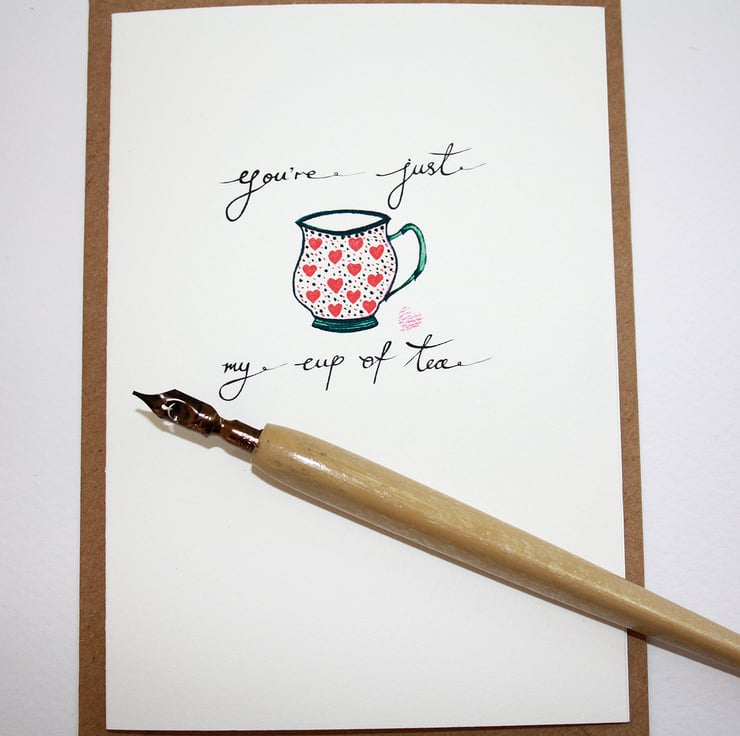 you're just
my cup of tea